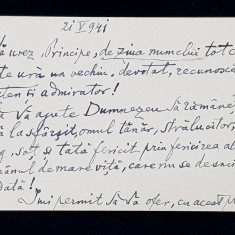 21 V 941
ă urez, Principe, de ziua numelui tot c
te ură un vechiu, devotat, recunoscă
ten și admirator!
Vă ajute Dumnezeu să rămâneț
la sfârșit, omul tânăr, strălucitor,
soț, și tată fericit prin fericirea al
ânul de mare viță, care nu se desmi
dată!
Îmi permit să Vă ofer, cu acest pr